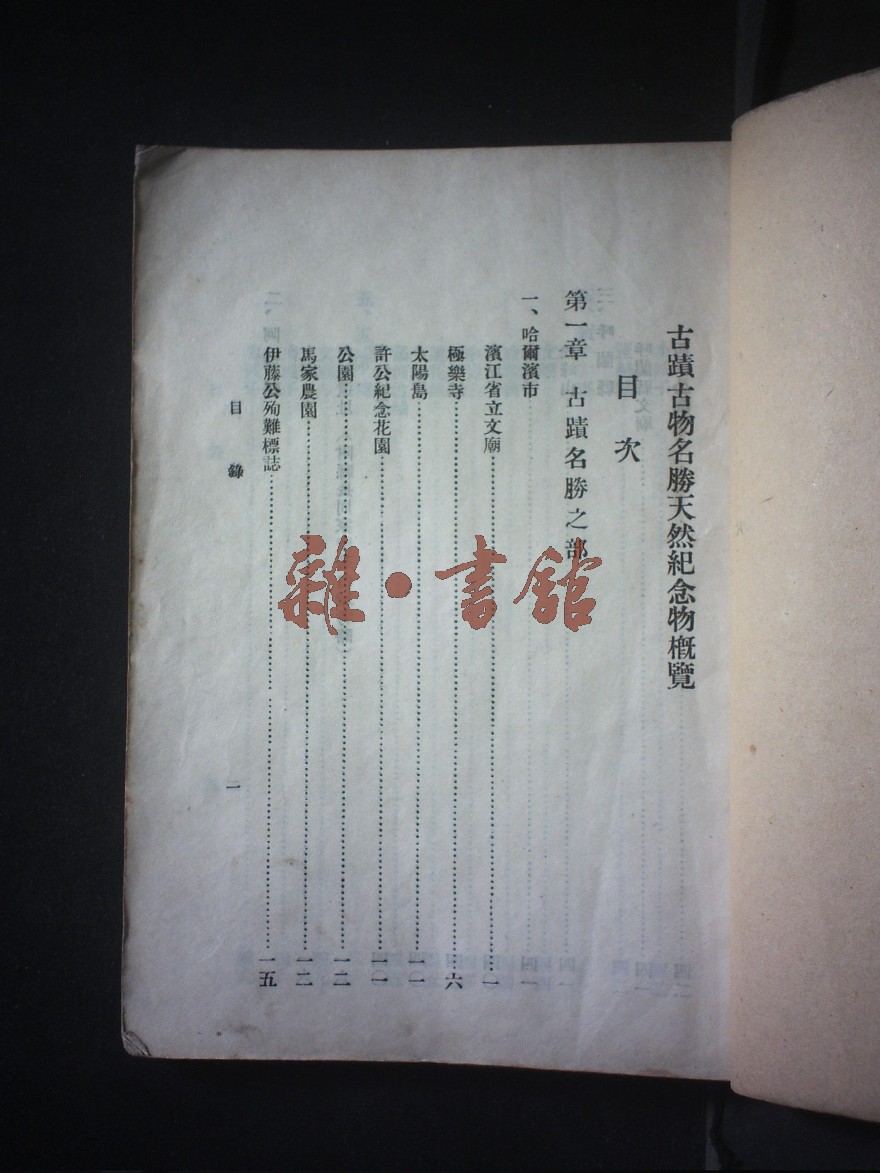 古蹟古物名勝天然紀念物概覽
目次
第一章 古蹟名勝之部
一、哈爾濱市
濱江省立文廟……一
極樂寺……六
太陽島……
許公紀念花園……
公園……一二
馬家農園……一二
伊藤公殉難標誌……一五
目 錄
雜·書館